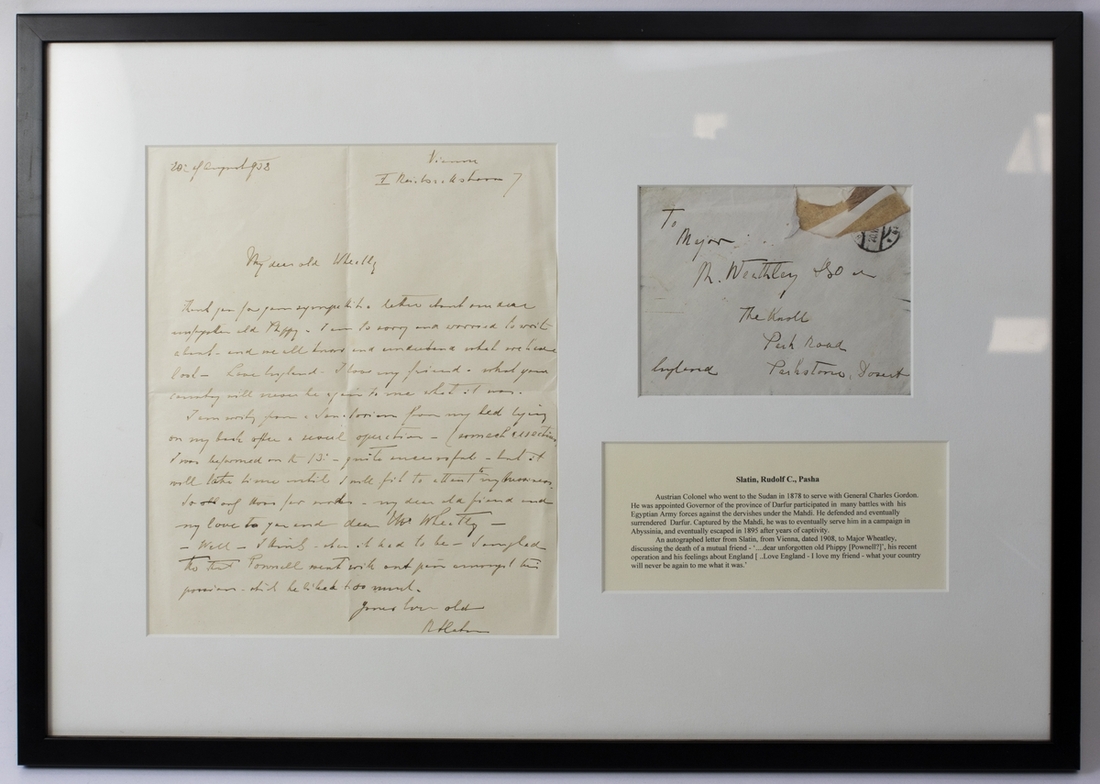 20: of August 908
Vienna
My dear old Wheatly
Thank you for your sympathetic letter about our dear
unforgotten old Phippy - I am so sorry and worried to write
about - and we all know and understand what we have
lost - Love England - I love my friend - what your
country will never be again to me what it was.
from my bed lying
on my back after a severe operation - (
I was on the 13: - quite successful - but it
will take time until I will be fit to attend to my business.
- my dear old friend and
my love to you and dear Mrs Wheatly -
- Well - I think - when it had to be -
Pownell went without pain amongst his
- which he liked too much.
Yours ever old
RSlatin
To
Major
M. Weathley
The Knoll
Park Road
England Parkstone, Dorset
Slatin, Rudolf C., Pasha
Austrian Colonel who went to the Sudan in 1878 to serve with General Charles Gordon.
He was appointed Governor of the province of Darfur participated in many battles with his
Egyptian Army forces against the dervishes under the Mahdi. He defended and eventually
surrendered Darfur. Captured by the Mahdi, he was to eventually serve him in a campaign in
Abyssinia, and eventually escaped in 1895 after years of captivity.
An autographed letter from Slatin, from Vienna, dated 1908, to Major Wheatley,
discussing the death of a mutual friend - '....dear unforgotten old Phippy [Pownell?]', his recent
operation and his feelings about England [ ..Love England - I love my friend - what your country
will never be again to me what it was.'